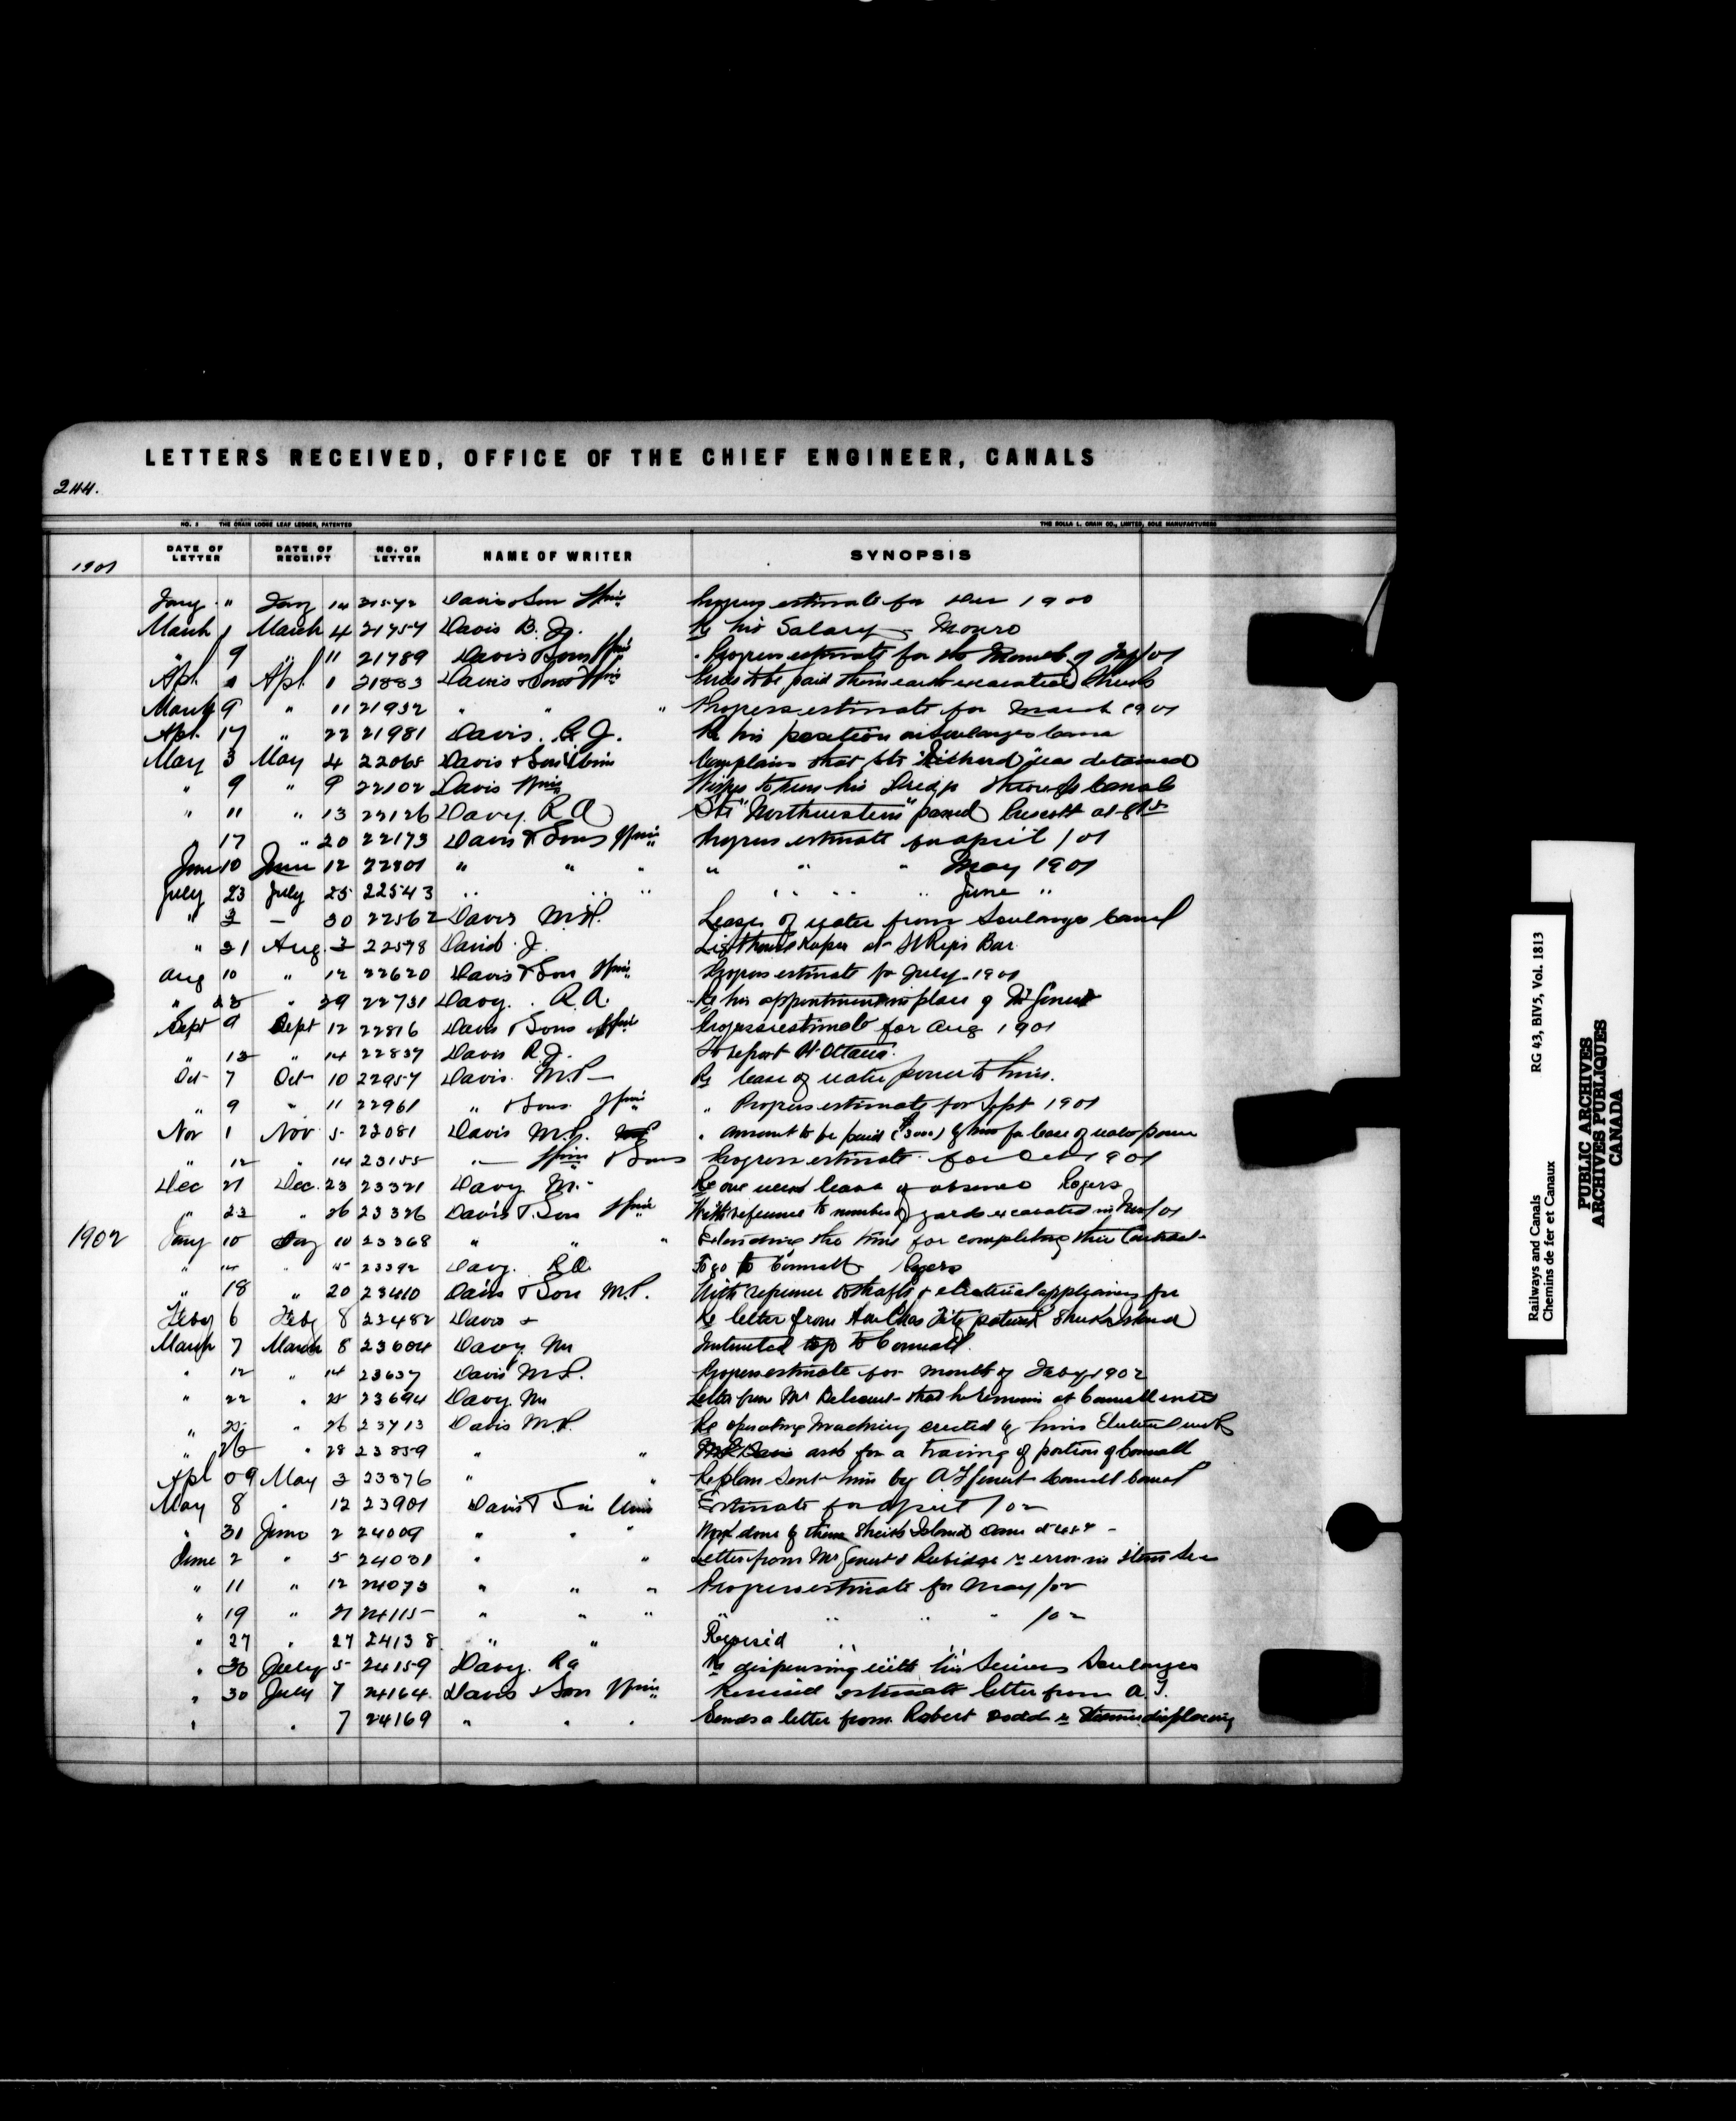 LETTERS RECEIVED, OFFICE OF THE CHIEF ENGINEER, CANALS
244.
NO. 1 THE CRAIN LOOSE LEAF LEDGER, PATENTED THE ROLLA L. CRAIN CO., LIMITED, SOLE MANUFACTURERS
1901 DATE OF LETTER DATE OF RECEIPT NO. OF LETTER NAME OF WRITER SYNOPSIS
Jany " Jany 14 21572 Davis & Son Wm Progress estimate for Dec 1900
March 1 March 4 21757 Davis B. Jy. Re his Salary - Monro
" 9 " 11 21789 Davis & Sons Wm Progress estimate for the Month of
Apl. Apl. 1 21883 Davis & Sons Wm to be paid them earth excavation
March 9 " 11 21932 " " " Progress estimate for March 1901
Apl. 17 " 22 21981 Davis. R. J. Re his position on Soulanges Canal
May 3 May 4 22065 Davis & Sons Wm Complains that Str was detained
" 9 " 9 22102 Davis Wm Wishes to his Dredge through Canals
" 11 " 13 22126 Davy. R A Str "Northwestern" passed Prescott at
17 " 20 22173 Davis & Sons Wm Progress estimate for April /01
June 10 June 12 22301 " " " " " " May 1901
July 23 July 25 22543 " " " " " " " June "
" 3 — 30 22562 Davis M.P. Leases of water from Soulanges Canal
" 31 Aug. 2 22578 David. J. Lighthouse keeper at Bar
Aug 10 " 12 22620 Davis & Son Wm Progress estimate for July 1901
" 28 " 29 22731 Davy. R. A. Re his appointment in place of Mr
Sept 9 Sept 12 22816 Davis & Sons Wm Progress estimate for Aug 1901
" 12 " 14 22837 Davis R. J. To report at Ottawa.
Oct 7 Oct 10 22957 Davis. M.P— Re lease of water power to him.
" 9 " 11 22961 " & Sons Wm " Progress estimate for Sept 1901
Nov 1 Nov 5 23081 Davis M.P. " Amount to be paid by him for lease of water power
" 12 " 14 23155 " — Wm & Sons Progress estimate for Oct 1901
Dec 21 Dec. 23 23321 Davy M.- Re one week leave of absence Rogers
" 23 " 26 23326 Davis & Son Wm With reference to number of yards excavated in Nov/01
1902 Jany 10 Jany 10 23368 " " " Extending the time for completing their Contract
" 14 " 15 23392 Davy. R A. To go to Cornwall Rogers
" 18 " 20 23410 Davis & Son M.P. With reference to shafts & electrical appliances for
Feby 6 Feby 8 23482 Davis & Re letter from Hon Chas Fitzpatrick Sheik Island
March 7 March 8 23604 Davy Mr Instructed to go to Cornwall.
" 12 " 14 23637 Davis M.P. Progress estimate for month of Feby 1902
" 22 " 25 23694 Davy. Mr Letter from Mr that he remain at Cornwall
" 25 " 26 23713 Davis M.P. Re operating Machinery erected by him Electrical work
" 26 " 28 23859 " " M.P. Davis asks for a tracing of portion of Cornwall
Apl 09 May 3 23876 " " Re plan sent him by A. J. Cornwall Canal
May 8 " 12 23901 Davis & Son Wm Estimate for April /02
" 31 June 2 24009 " " " Work done by them Sheik Island Dam
June 2 " 5 24031 " " Letter from Mr & Rubidge re error in item
" 11 " 12 24073 " " " Progress estimate for May /02
" 19 " 21 24115 " " " " " " " /02
" 27 " 27 24138 " " Revised "
" 30 July 5 24159 Davy. R a Re dispensing with his Services Soulanges
" 30 July 7 24164 Davis & Son Wm Revised estimate letter from A. J.
" " 7 24169 " " " Sends a letter from Robert Dodd re displacing
Railways and Canals RG 43, BIV5, Vol. 1813
Chemins de fer et Canaux
PUBLIC ARCHIVES
ARCHIVES PUBLIQUES
CANADA